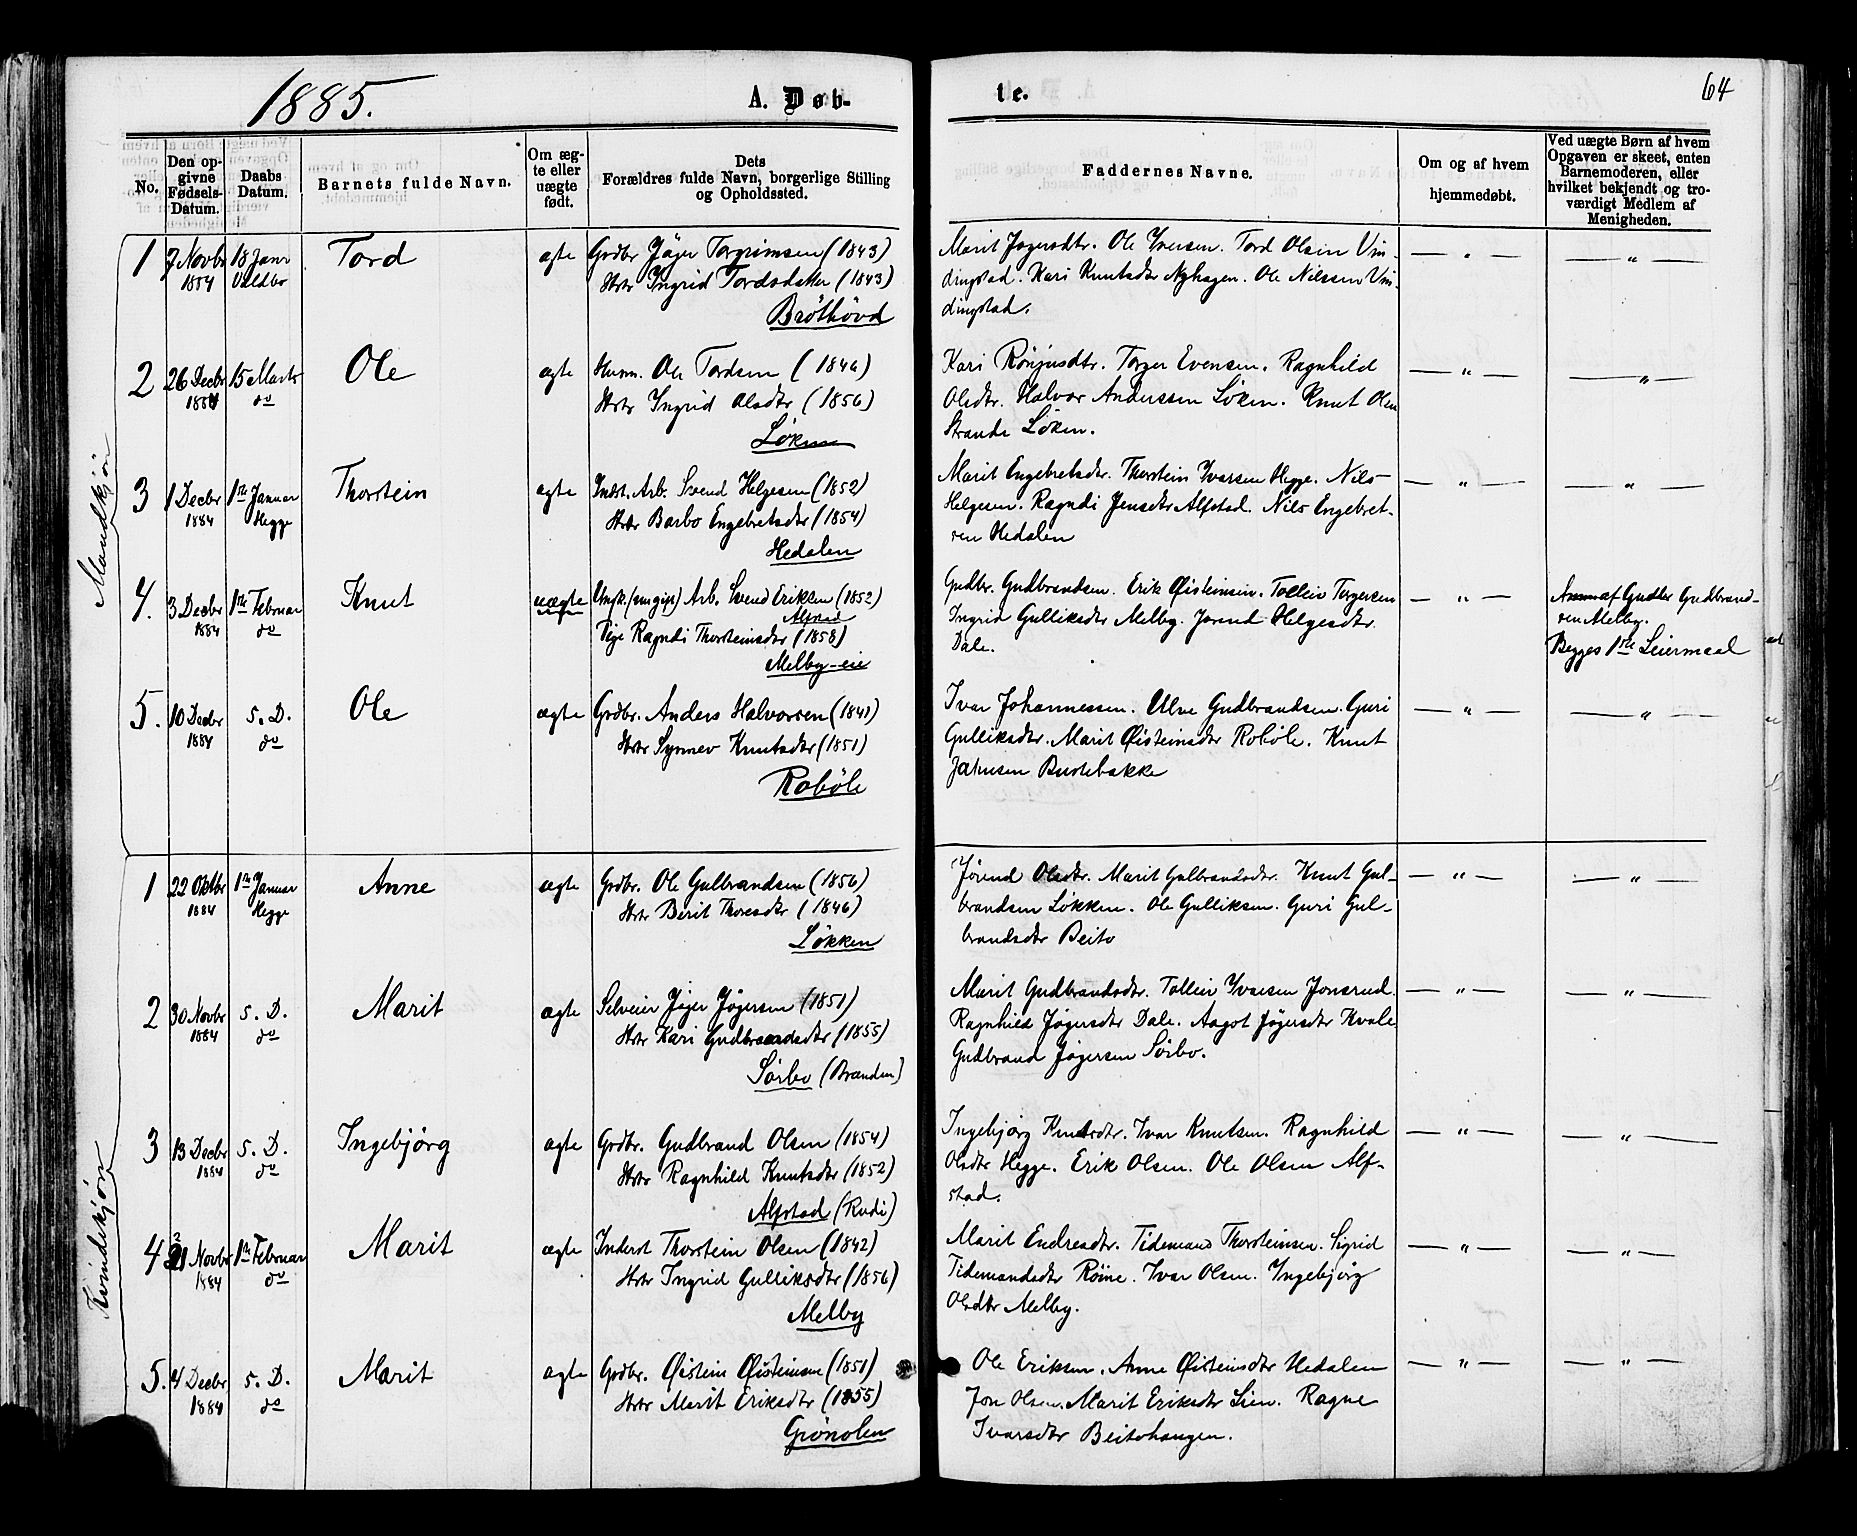 1885.
A. Døb-
te.
64
No.
Den op-
givne
Fødsels-
Datum.
Daabs
Datum.
Barnets fulde Navn.
Om æg-
te eller
uægte
født.
Dets
Forældres fulde Navn, borgerlige Stilling
og Opholdssted.
Faddernes Navne.
Om og af hvem
hjemmedøbt.
Ved uægte Børn af hvem
Opgaven er skeet, enten
Barnemoderen, eller
hvilket bekjendt og tro-
værdigt Medlem af
Menigheden.
Mandkjøn
1 7 Novbr 18 Janr Tord ægte Grdbr Jøger Torgrimsen (1843) Marit Jøgersdtr. Ole Iversen. Tord Olsen Vin- — " — — " —
1884 Vuldbo Hstr Ingrid Tordsdatter (1843) dingstad. Kari Knutsdtr Nyhagen. Ole Nilssen Vin-
Bröthövd dingstad.
2 26 Decbr 15 Marts Ole ægte Husm. Ole Tordsen (1846) Kari Rönjusdtr. Torger Evensen. Ragnhild — " — — " —
1884 do Hstr Ingrid Olsdtr (1856) Olsdtr. Halvor Anderssen Löken. Knut Olsen
Löken Strande Löken.
3 1 Decbr 1ste Januar Thorstein ægte Indst. Arb. Svend Helgesen (1852) Marit Engebretsdtr. Thorstein Ivarsen Hegge. Nils — " — — " —
1884 Hegge Hstr Barbo Engebretsdtr (1854) Helgesen. Ragndi Jensdtr Alfstad. Nils Engebret-
Hedalen sen Hedalen
4. 3 Decbr 1ste Februar Knut uægte Ungk. (um gift) Arb. Svend Eriksen (1852) Gudbr. Gudbrandsen. Erik Øisteinsen. Tollein Torgersen — " — Anm af Gudbr Gudbrand-
1884 do Alfstad Ingrid Gulliksdtr Melby. Jörend Helgesdtr sen Melby.
Pige Ragndi Thorsteinsdtr (1858) Dale. Begges 1ste Leiermaal
Melby-eie
5. 10 Decbr S. D. Ole ægte Grdbr. Anders Halvorsen (1841) Ivar Johannessen. Ulve Gudbrandsen. Guri — " — — " —
1884 do Hstr Synnev Knutsdtr (1851) Gulliksdtr. Marit Øisteinsdtr Roböle. Knut
Roböle Jahnsen Bustebakke
Kvindekjøn
1 22 Oktbr 1ste Januar Anne ægte Grdbr. Ole Gulbrandsen (1856) Jörend Olsdtr. Marit Gulbrandsdtr. Knut Gul- — " — — " —
1884 Hegge Hstr Berit Thoresdtr (1846) brandsen Løkken. Ole Gulliksen. Guri Gul-
Løkken brandsdtr Beito
2 30 Novbr S. D. Marit ægte Selveier Jøger Jøgersen (1851) Marit Gudbrandsdtr. Tollein Ivarsen Jonsrud. — " — — " —
1884 do Hstr Kari Gudbrandsdtr (1855) Ragnhild Jøgersdtr Dale. Aagot Jøgersdtr Kvale
Sörbo (Branden) Gudbrand Jøgersen Sörbo.
3 13 Decbr S. D. Ingebjörg ægte Grdbr. Gudbrand Olsen (1854) Ingebjörg Knutsdtr. Ivar Knutsen. Ragnhild — " — — " —
1884 do Hstr Ragnhild Knutsdtr (1852) Olsdtr Hegge. Erik Olsen. Ole Olsen Alf-
Alfstad (Rudi) stad.
4 21 Novbr 1ste Februar Marit ægte Inderst Thorstein Olsen (1842) Marit Endresdtr. Tidemand Thorsteinsen. Sigrid — " — — " —
1884 do Hstr Ingrid Gulliksdtr (1856) Tidemandsdtr Röine. Ivar Olsen. Ingebjörg
Melby Olsdtr Melby.
5. 4 Decbr S. D. Marit ægte Grdbr. Øistein Øisteinsen (1851) Ole Eriksen. Anne Øisteinsdtr Hedalen — " — — " —
1884 do Hstr Marit Eriksdtr (1855) Jon Olsen. Marit Eriksdtr Lien. Ragne
Grönolen Ivarsdtr Beitohaugen.